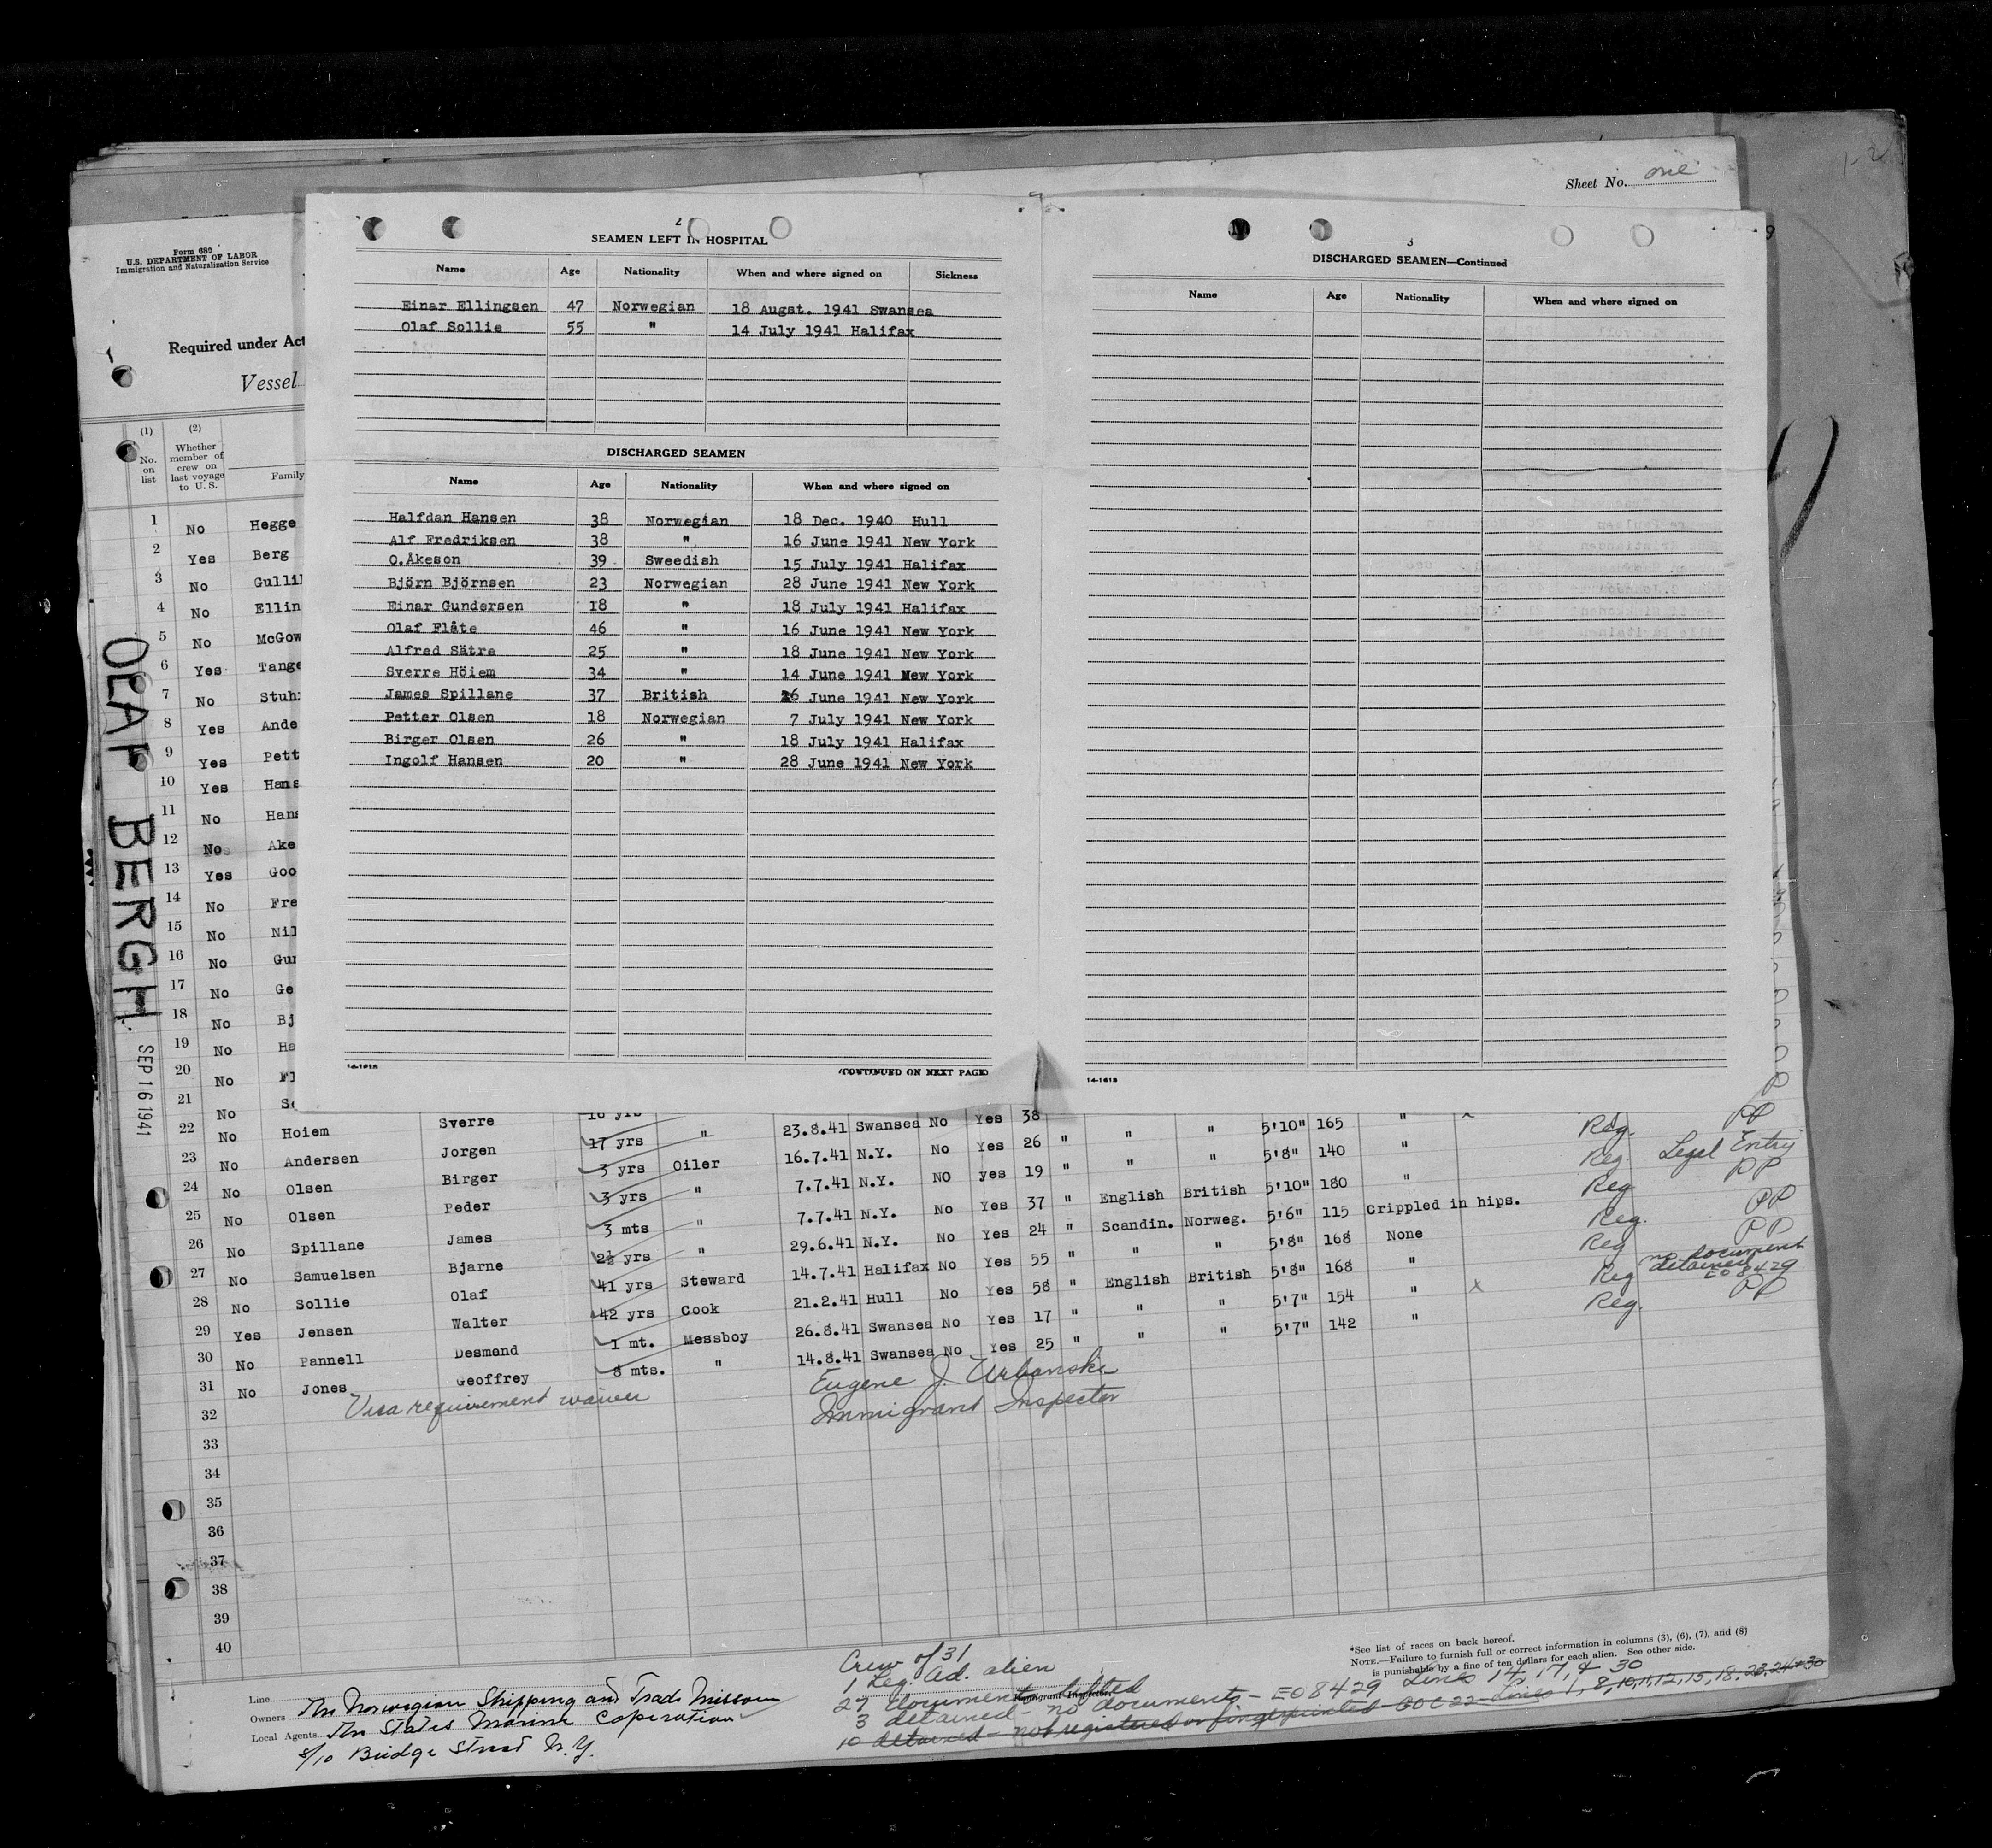 Sheet No. one
1-2
Form 680
U.S. DEPARTMENT OF LABOR
Immigration and Naturalization Service
Required under Act
Vessel
(1) (2)
No. on list
Whether member of crew on last voyage to U. S.
Family
2
SEAMEN LEFT IN HOSPITAL
Name Age Nationality When and where signed on Sickness
Einar Ellingsen 47 Norwegian 18 Augst. 1941 Swansea
Olaf Sollie 55 " 14 July 1941 Halifax
DISCHARGED SEAMEN
Name Age Nationality When and where signed on
Halfdan Hansen 38 Norwegian 18 Dec. 1940 Hull
Alf Fredriksen 38 " 16 June 1941 New York
O.Åkeson 39 Sweedish 15 July 1941 Halifax
Björn Björnsen 23 Norwegian 28 June 1941 New York
Einar Gundersen 18 " 18 July 1941 Halifax
Olaf Flåte 46 " 16 June 1941 New York
Alfred Sätre 25 " 18 June 1941 New York
Sverre Höiem 34 " 14 June 1941 New York
James Spillane 37 British 26 June 1941 New York
Petter Olsen 18 Norwegian 7 July 1941 New York
Birger Olsen 26 " 18 July 1941 Halifax
Ingolf Hansen 20 " 28 June 1941 New York
14-1618
(CONTINUED ON NEXT PAGE)
3
DISCHARGED SEAMEN—Continued
Name Age Nationality When and where signed on
14-1618
OLAF BERGH.
SEP 16 1941
1 No Hegge
2 Yes Berg
3 No Gulli
4 No Ellin
5 No McGow
6 Yes Tange
7 No Stuh
8 Yes Ande
9 Yes Pett
10 Yes Hans
11 No Hans
12 No Ake
13 Yes Goo
14 No Fre
15 No Nil
16 No Gun
17 No Ge
18 No Bj
19 No Ha
20 No Fl
21 No
22 No Hoiem Sverre 17 yrs " 23.8.41 Swansea No Yes 38
23 No Andersen Jorgen 3 yrs Oiler 16.7.41 N.Y. No Yes 26 " " " 5'10" 165 " Reg. PP
24 No Olsen Birger 3 yrs " 7.7.41 N.Y. NO yes 19 " " " 5'8" 140 " Reg. Legal Entry
25 No Olsen Peder 3 mts " 7.7.41 N.Y. No Yes 37 " English British 5'10" 180 " Reg PP
26 No Spillane James 2½ yrs " 29.6.41 N.Y. No Yes 24 " Scandin. Norweg. 5'6" 115 Crippled in hips. Reg. PP
27 No Samuelsen Bjarne 41 yrs Steward 14.7.41 Halifax No Yes 55 " " " 5'8" 168 None Reg PP
28 No Sollie Olaf 42 yrs Cook 21.2.41 Hull No Yes 58 " English British 5'8" 168 " Reg no document detained EO 8429
29 Yes Jensen Walter 1 mt. Messboy 26.8.41 Swansea No Yes 17 " " " 5'7" 154 " X Reg. PP
30 No Pannell Desmond 8 mts. " 14.8.41 Swansea No Yes 25 " " " 5'7" 142 "
31 No Jones Geoffrey
32 Visa requirement waiver
Eugene J. Urbanski
Immigrant Inspector
33
34
35
36
37
38
39
40
*See list of races on back hereof.
NOTE.—Failure to furnish full or correct information in columns (3), (6), (7), and (8)
is punishable by a fine of ten dollars for each alien. See other side.
Line
Owners The Norwegian Shipping and Trade Mission
Local Agents The States Marine Coperation
8/10 Bridge Street N.Y.
Crew of 31
1 Leg. Ad. alien
27 documents lifted
Immigrant Inspector.
3 detained - no documents - EO 8429 Lines 14, 17, & 30
10 detained - not registered or fingerprinted GOC 22 - Lines 1, 8, 10, 11, 12, 15, 18, 23, 24 + 30